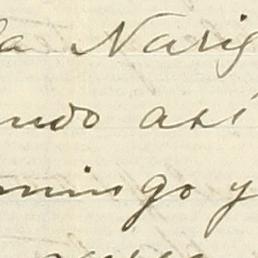 la Narig
ndo así
mingo y